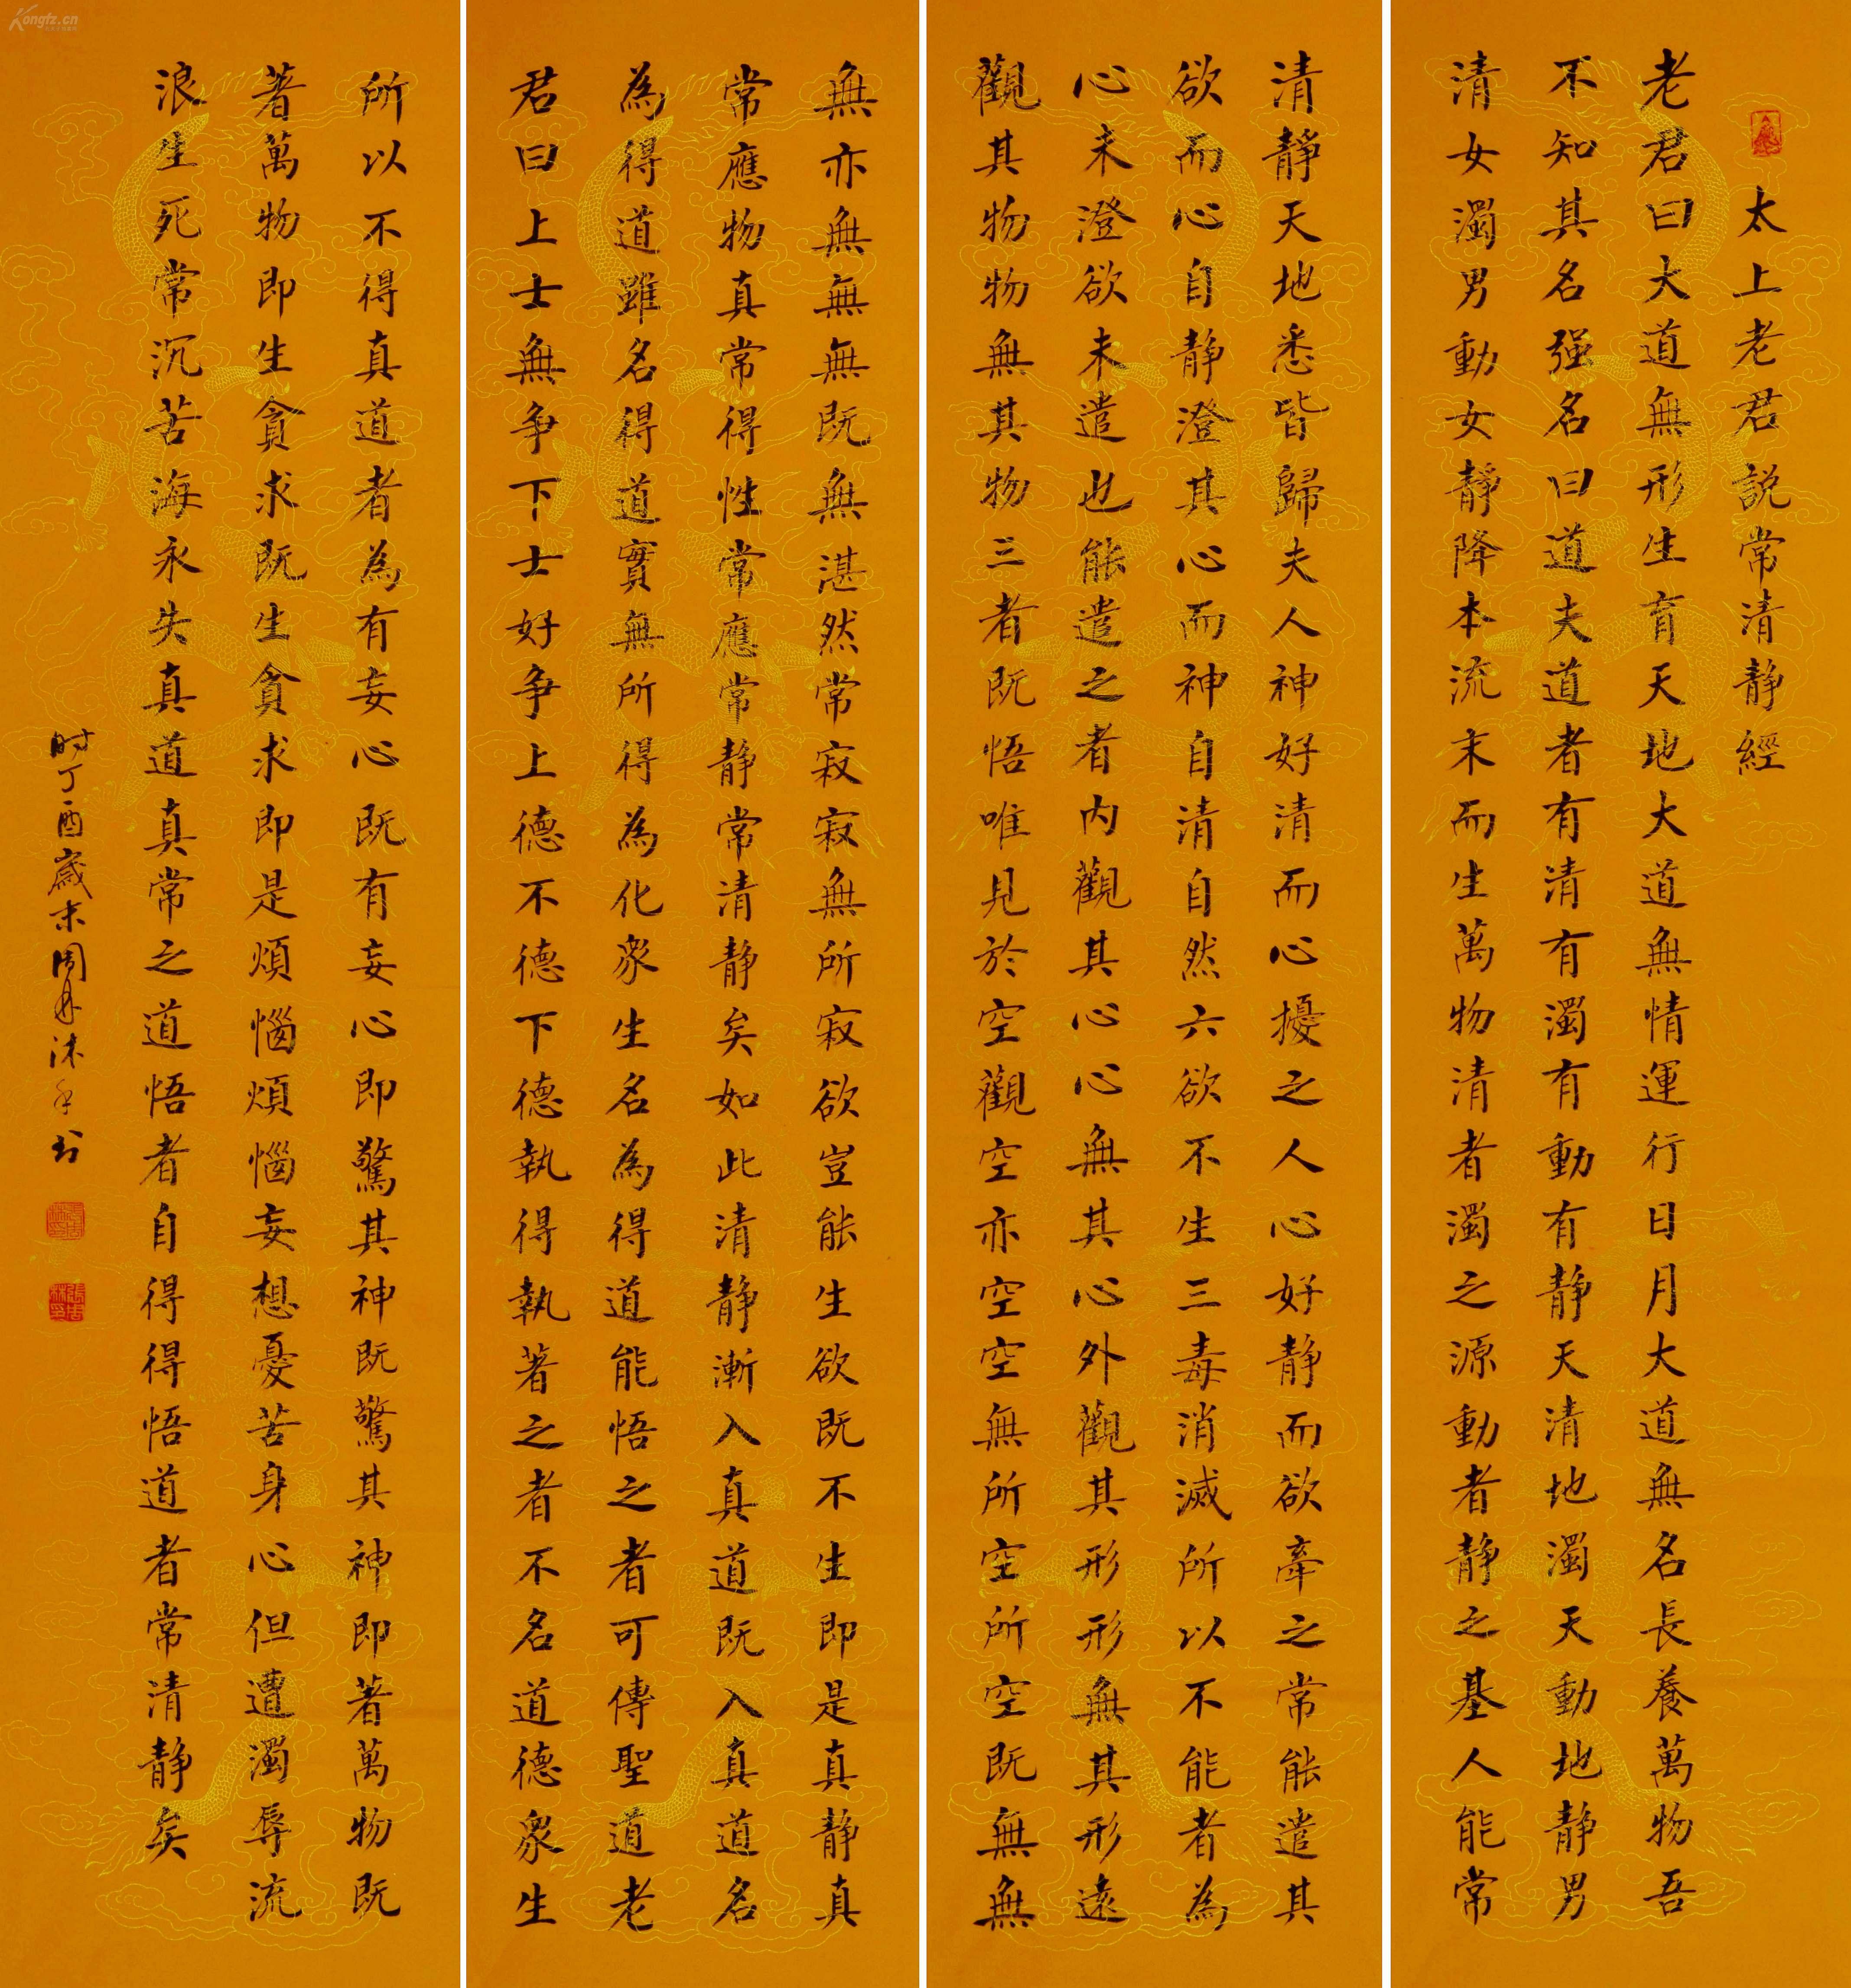 太上老君説常清静經
老君曰大道無形生育天地大道無情運行日月大道無名長養萬物吾
不知其名强名曰道夫道者有清有濁有動有静天清地濁天動地静男
清女濁男動女靜降本流末而生萬物清者濁之源動者静之基人能常
清靜天地悉皆歸夫人神好清而心擾之人心好静而欲牽之常能遣其
欲而心自静澄其心而神自清自然六欲不生三毒消滅所以不能者為
心未澄欲未遣也能遣之者内觀其心心無其心外觀其形形無其形遠
觀其物物無其物三者既悟唯見於空觀空亦空空無所空所空既無無
無亦無無無既無湛然常寂寂無所寂欲豈能生欲既不生即是真静真
常應物真常得性常應常静常清静矣如此清静漸入真道既入真道名
為得道雖名得道實無所得為化衆生名為得道能悟之者可傳聖道老
君曰上士無争下士好争上德不德下德執得執著之者不名道德衆生
所以不得真道者為有妄心既有妄心即驚其神既驚其神即著萬物既
著萬物即生貪求既生貪求即是煩惱煩惱妄想憂苦身心但遭濁辱流
浪生死常沉苦海永失真道真常之道悟者自得得悟道者常清静矣
时丁酉歲末周沐手书
Kongfz.cn